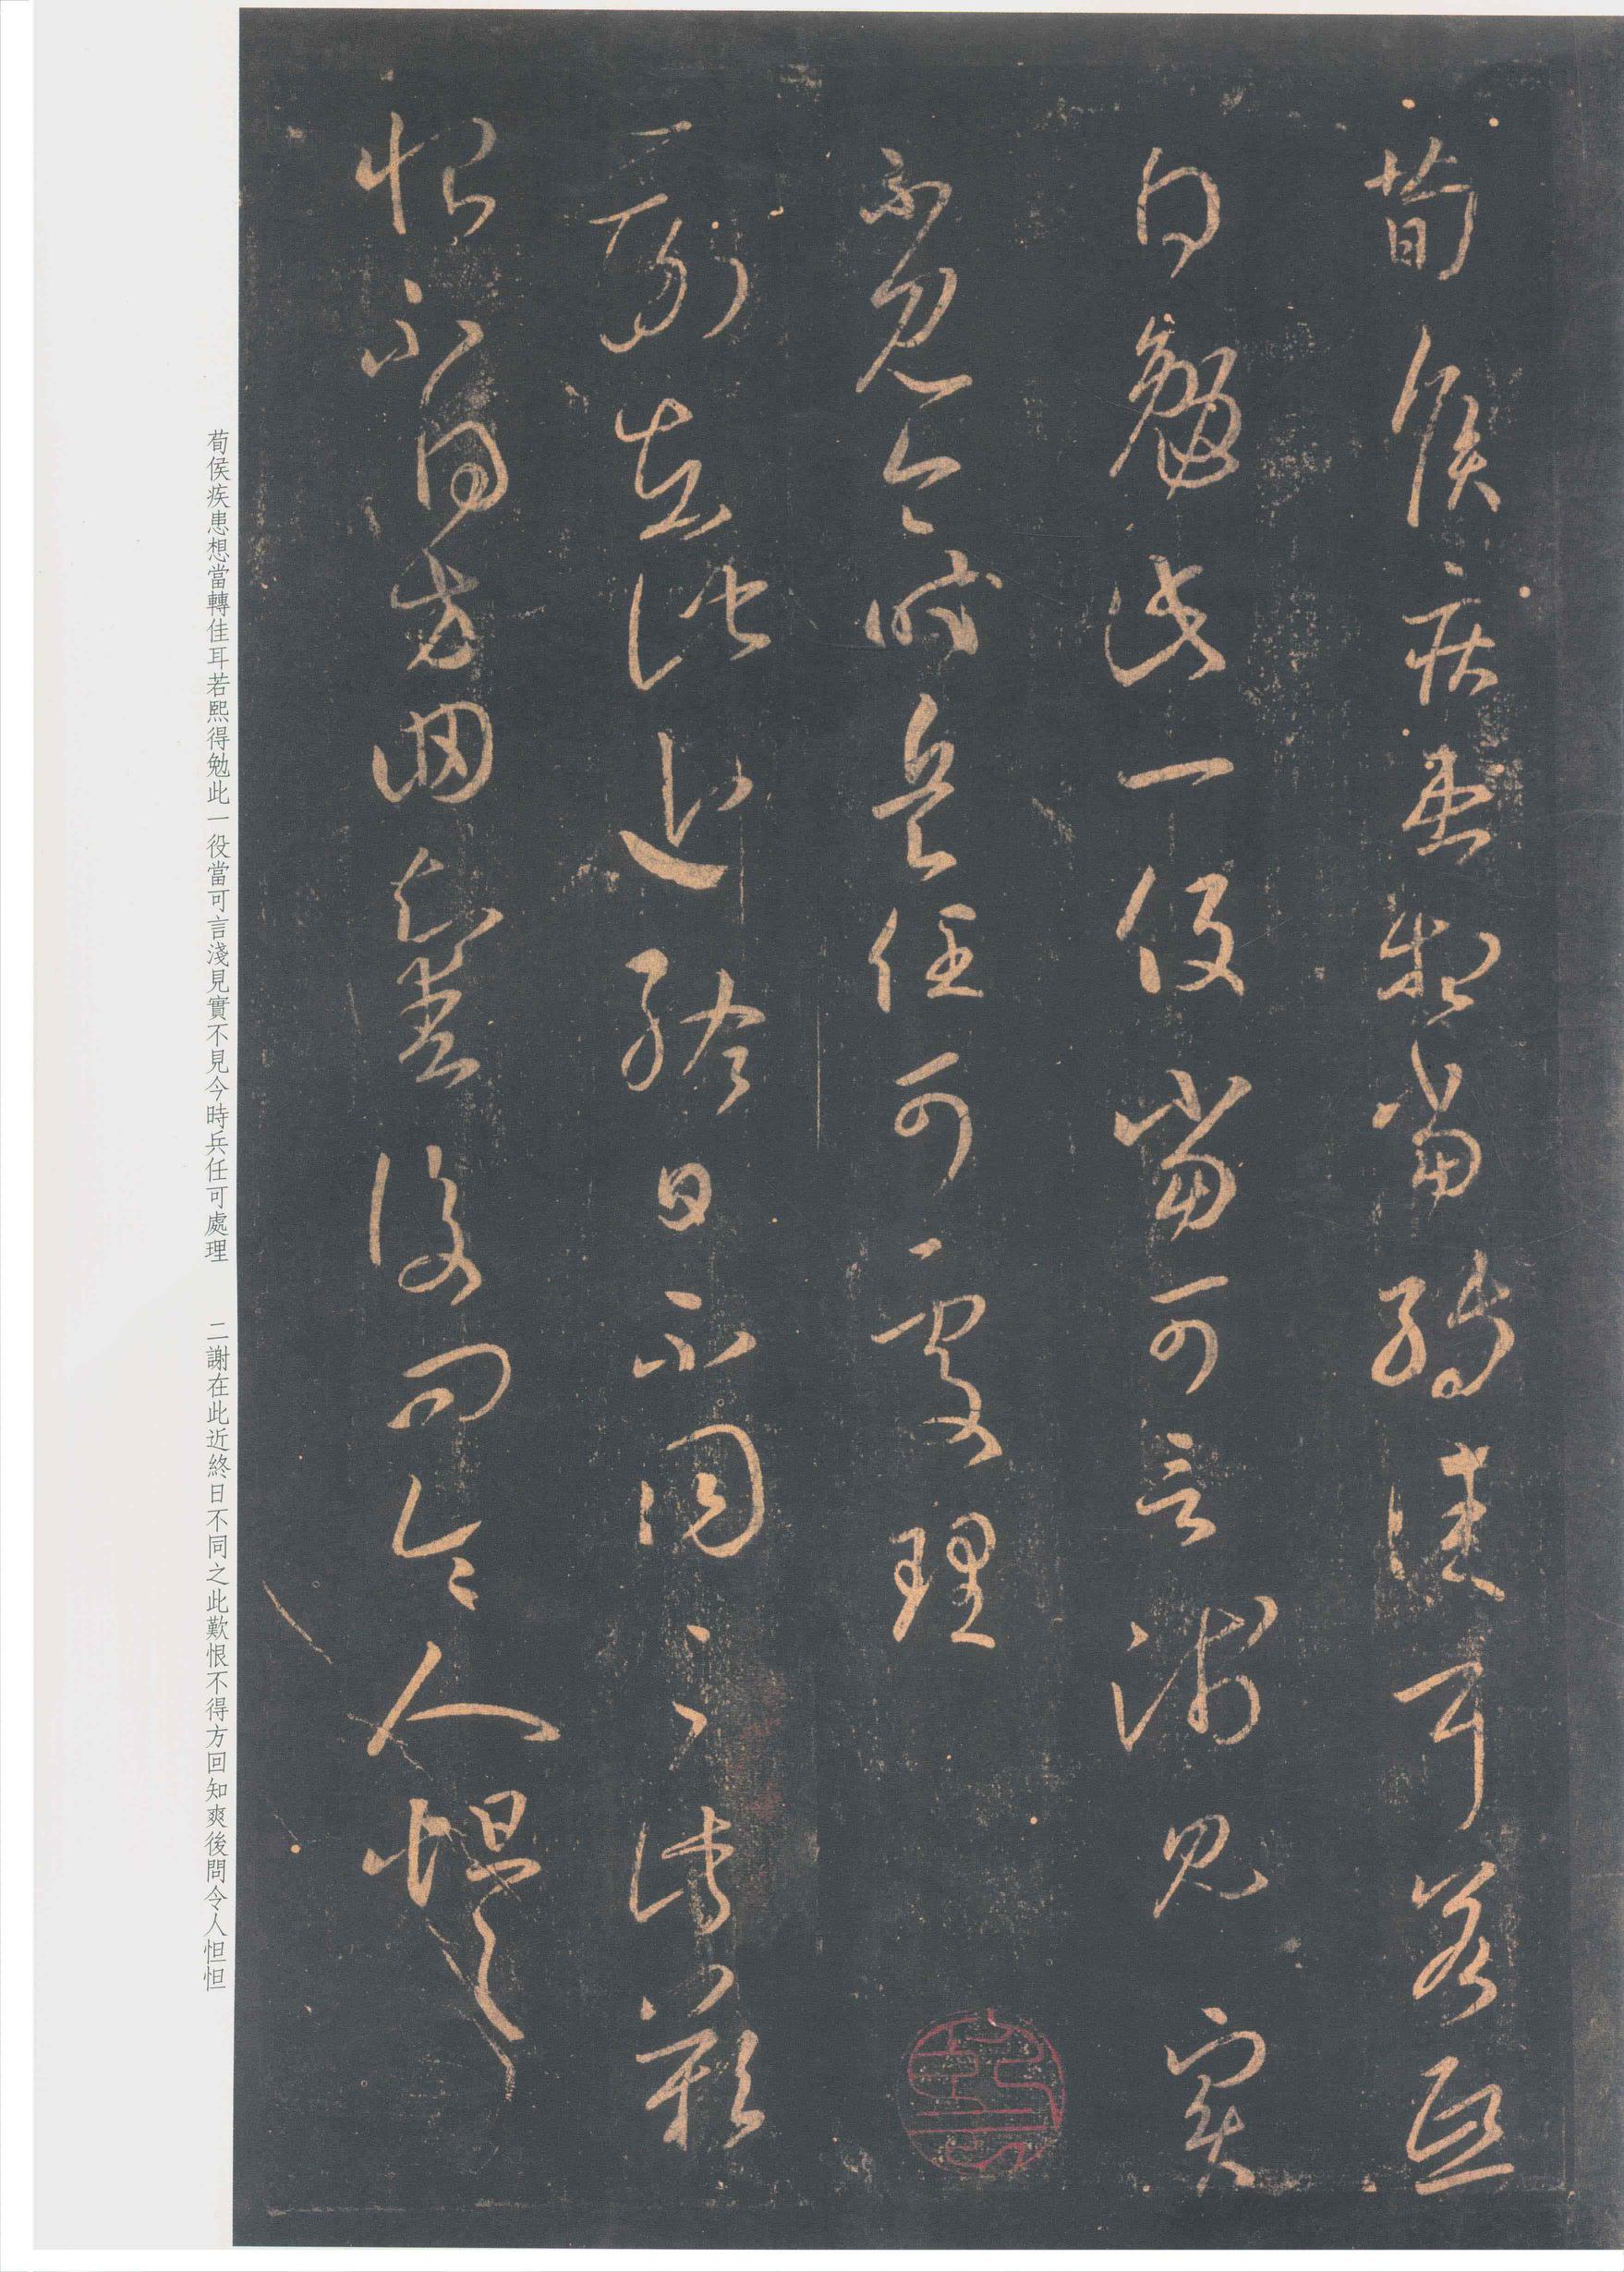 荀侯疾患想當轉佳耳若熙
得勉此一役當可言淺見實
不見今時兵任可處理
二謝在此近終日不同之此歎
恨不得方回知爽後問令人怛怛
荀侯疾患想當轉佳耳若熙得勉此一役當可言淺見實不見今時兵任可處理　二謝在此近終日不同之此歎恨不得方回知爽後間令人怛怛